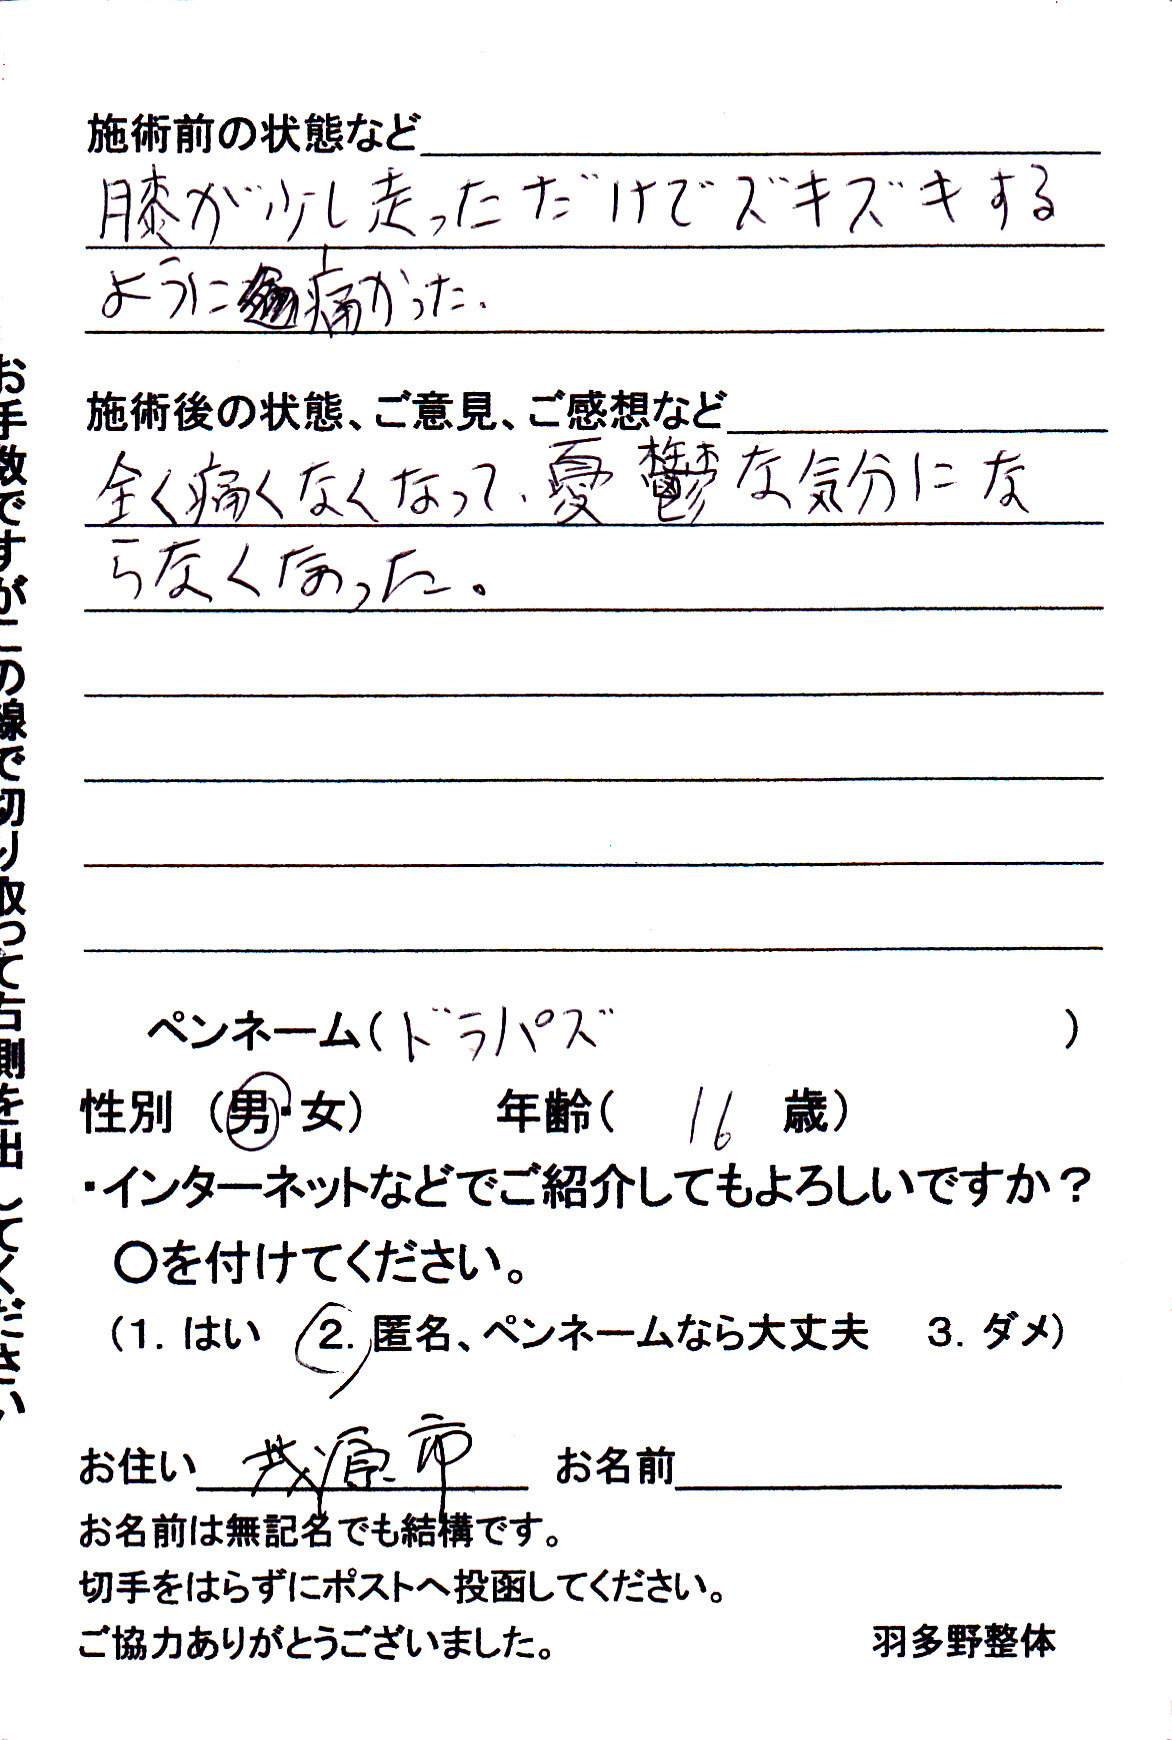 施術前の状態など
膝が少し走っただけでズキズキする
ように痛かった.
施術後の状態、ご意見、ご感想など
全く痛くなくなって、憂鬱な気分にな
らなくなった。
ペンネーム(ドラパズ)
性別 (男・女) 年齢( 16 歳)
・インターネットなどでご紹介してもよろしいですか?
〇を付けてください。
(1. はい 2. 匿名、ペンネームなら大丈夫 3. ダメ)
お住い 茂原市 お名前
お名前は無記名でも結構です。
切手をはらずにポストへ投函してください。
ご協力ありがとうございました。 羽多野整体
お手数ですがこの線で切り取って右側を出してください